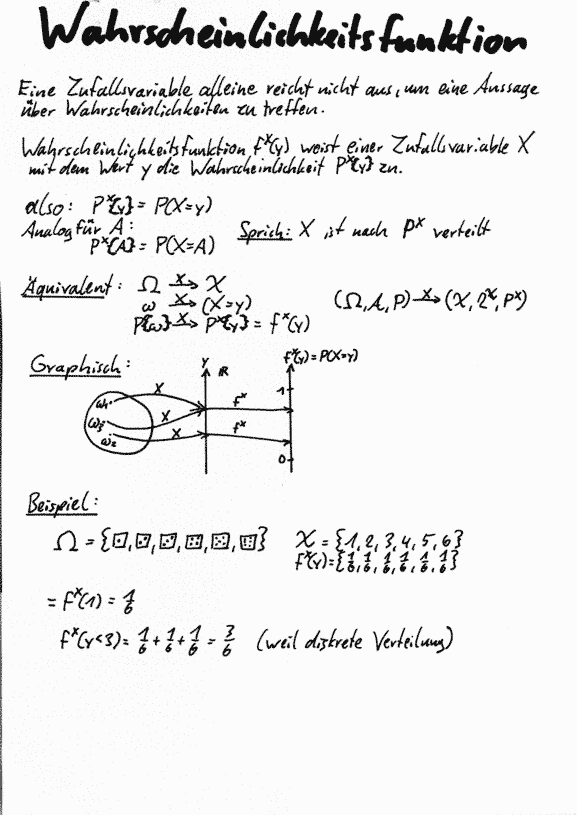 Wahrscheinlichkeitsfunktion
Eine Zufallsvariable alleine reicht nicht aus, um eine Aussage
über Wahrscheinlichkeiten zu treffen.
Wahrscheinlichkeitsfunktion fˣ(y) weist einer Zufallsvariable X
mit dem Wert y die Wahrscheinlichkeit Pˣ{y} zu.
also: Pˣ{y} = P(X=y)
Analog für A:
Pˣ{A} = P(X=A)
Sprich: X ist nach Pˣ verteilt
Äquivalent: Ω →ˣ 𝒳
ω →ˣ (X=y)
P{ω} →ˣ Pˣ{y} = fˣ(y)
(Ω, A, P) →ˣ (𝒳, 2^𝒳, Pˣ)
Graphisch:
y ℝ
fˣ(y) = P(X=y)
ω₁ X fˣ 1
ω₃ X fˣ
ω₂ X 0
Beispiel:
Ω = {⚀, ⚁, ⚂, ⚃, ⚄, ⚅}
𝒳 = {1, 2, 3, 4, 5, 6}
fˣ(y) = {1/6, 1/6, 1/6, 1/6, 1/6, 1/6}
= fˣ(1) = 1/6
fˣ(y<3) = 1/6 + 1/6 + 1/6 = 3/6 (weil diskrete Verteilung)